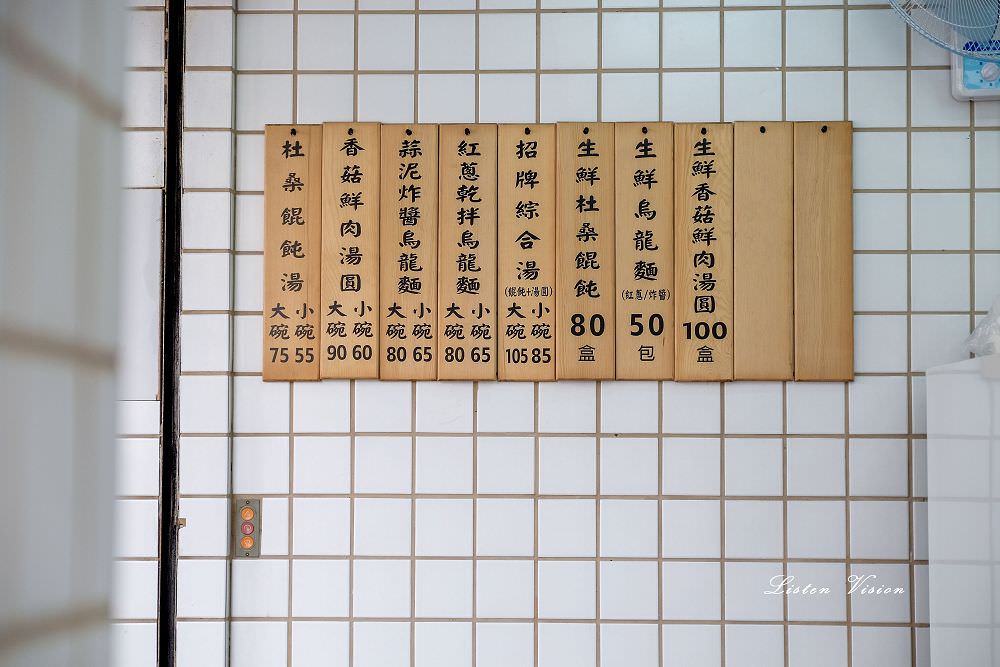 杜桑餛飩湯
大碗 小碗
75 55
香菇鮮肉湯圓
大碗 小碗
90 60
蒜泥炸醬烏龍麵
大碗 小碗
80 65
紅蔥乾拌烏龍麵
大碗 小碗
80 65
招牌綜合湯
(餛飩+湯圓)
大碗 小碗
105 85
生鮮杜桑餛飩
80
盒
生鮮烏龍麵
(紅蔥/炸醬)
50
包
生鮮香菇鮮肉湯圓
100
盒
Listen Vision